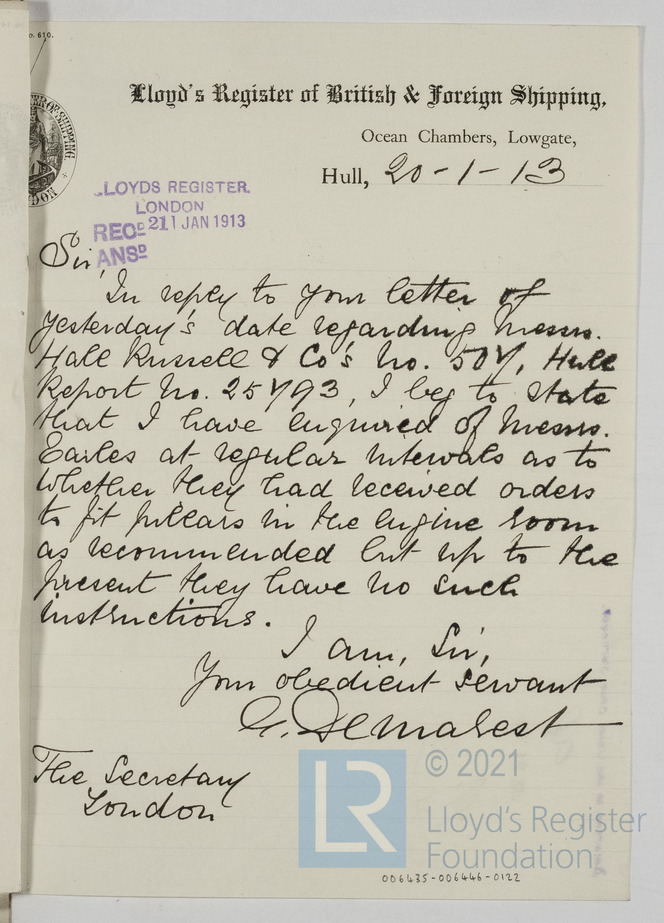 o. 610.
Lloyd's Register of British & Foreign Shipping,
Ocean Chambers, Lowgate,
Hull, 20-1-13
LLOYDS REGISTER.
LONDON
RECD 21 JAN 1913
ANSD
Sir,
In reply to your letter of
yesterday's date regarding Messrs.
Hall Russell & Co's No. 507, Hull
Report No. 25793, I beg to state
that I have enquired of Messrs.
Earles at regular intervals as to
whether they had received orders
to fit pillars in the engine room
as recommended but up to the
present they have no such
instructions.
I am, Sir,
Your obedient servant
G. Demalest
The Secretary
London
© 2021
LR
Lloyd's Register
Foundation
006435-006446-0122